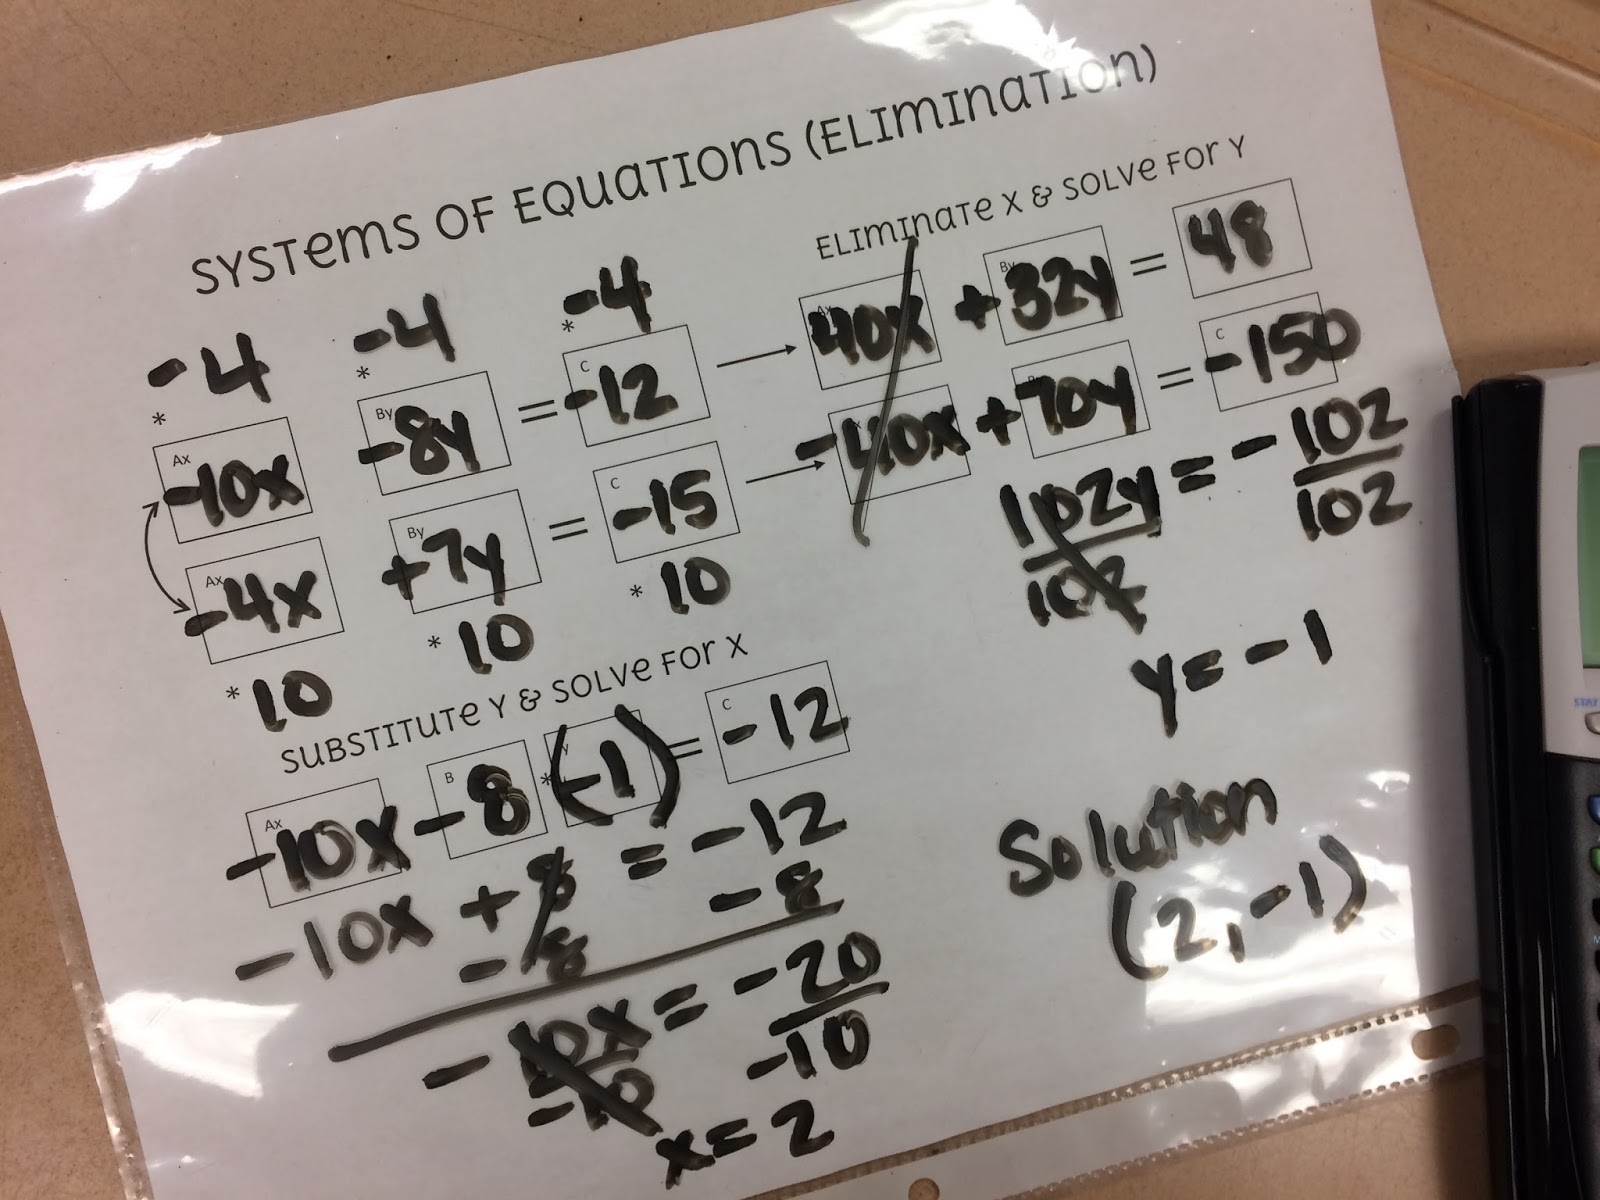 SYSTEMS OF EQUATIONS (ELIMINATION)
-4 -4 -4
* * *
Ax By C
-10x -8y = -12
Ax By C
-4x +7y = -15
* 10 * 10 * 10
ELIMINATE X & SOLVE FOR Y
Ax By
40x + 32y = 48
C
-40x + 70y = -150
102y = -102
102 102
y = -1
SUBSTITUTE Y & SOLVE FOR X
Ax B Y C
-10x - 8 * (-1) = -12
-10x + 8 = -12
-8 -8
-10x = -20
-10 -10
x = 2
Solution
(2, -1)